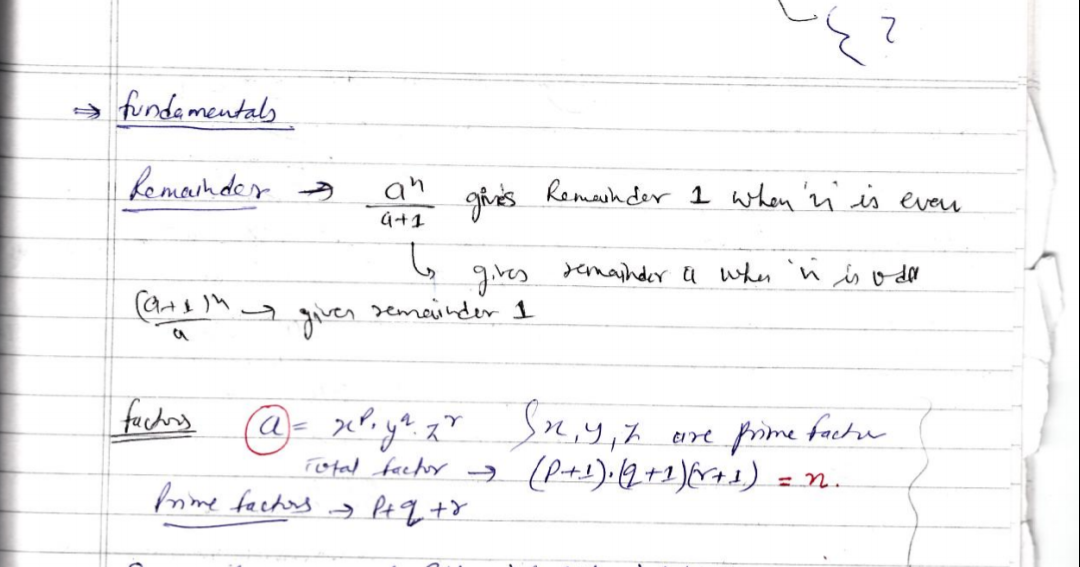 ?
⇒ fundamentals
Remainder → aⁿ/(a+1) gives Remainder 1 when 'n' is even
↳ gives remainder a when 'n' is odd
(a+1)ⁿ/a → gives remainder 1
factors a = xᵖ · y^q · zʳ { x, y, z are prime factor
Total factor → (p+1)·(q+1)(r+1) = n.
Prime factors → p+q+r